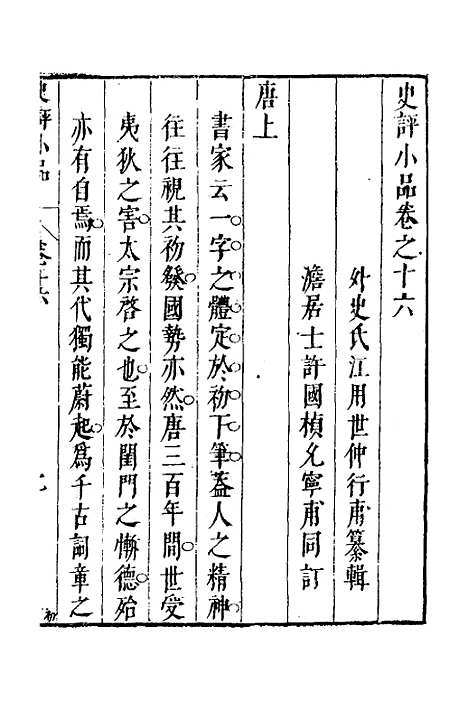 史評小品卷之十六
外史氏江用世仲行甫纂輯
澹居士許國楨允寧甫同訂
唐上
書家云一字之體定於初下筆蓋人之精神
往往視其初發國勢亦然唐三百年間世受
夷狄之害太宗啓之也至於閨門之慚德殆
亦有自焉而其代獨能蔚起爲千古詞章之
史評小品
卷之十六